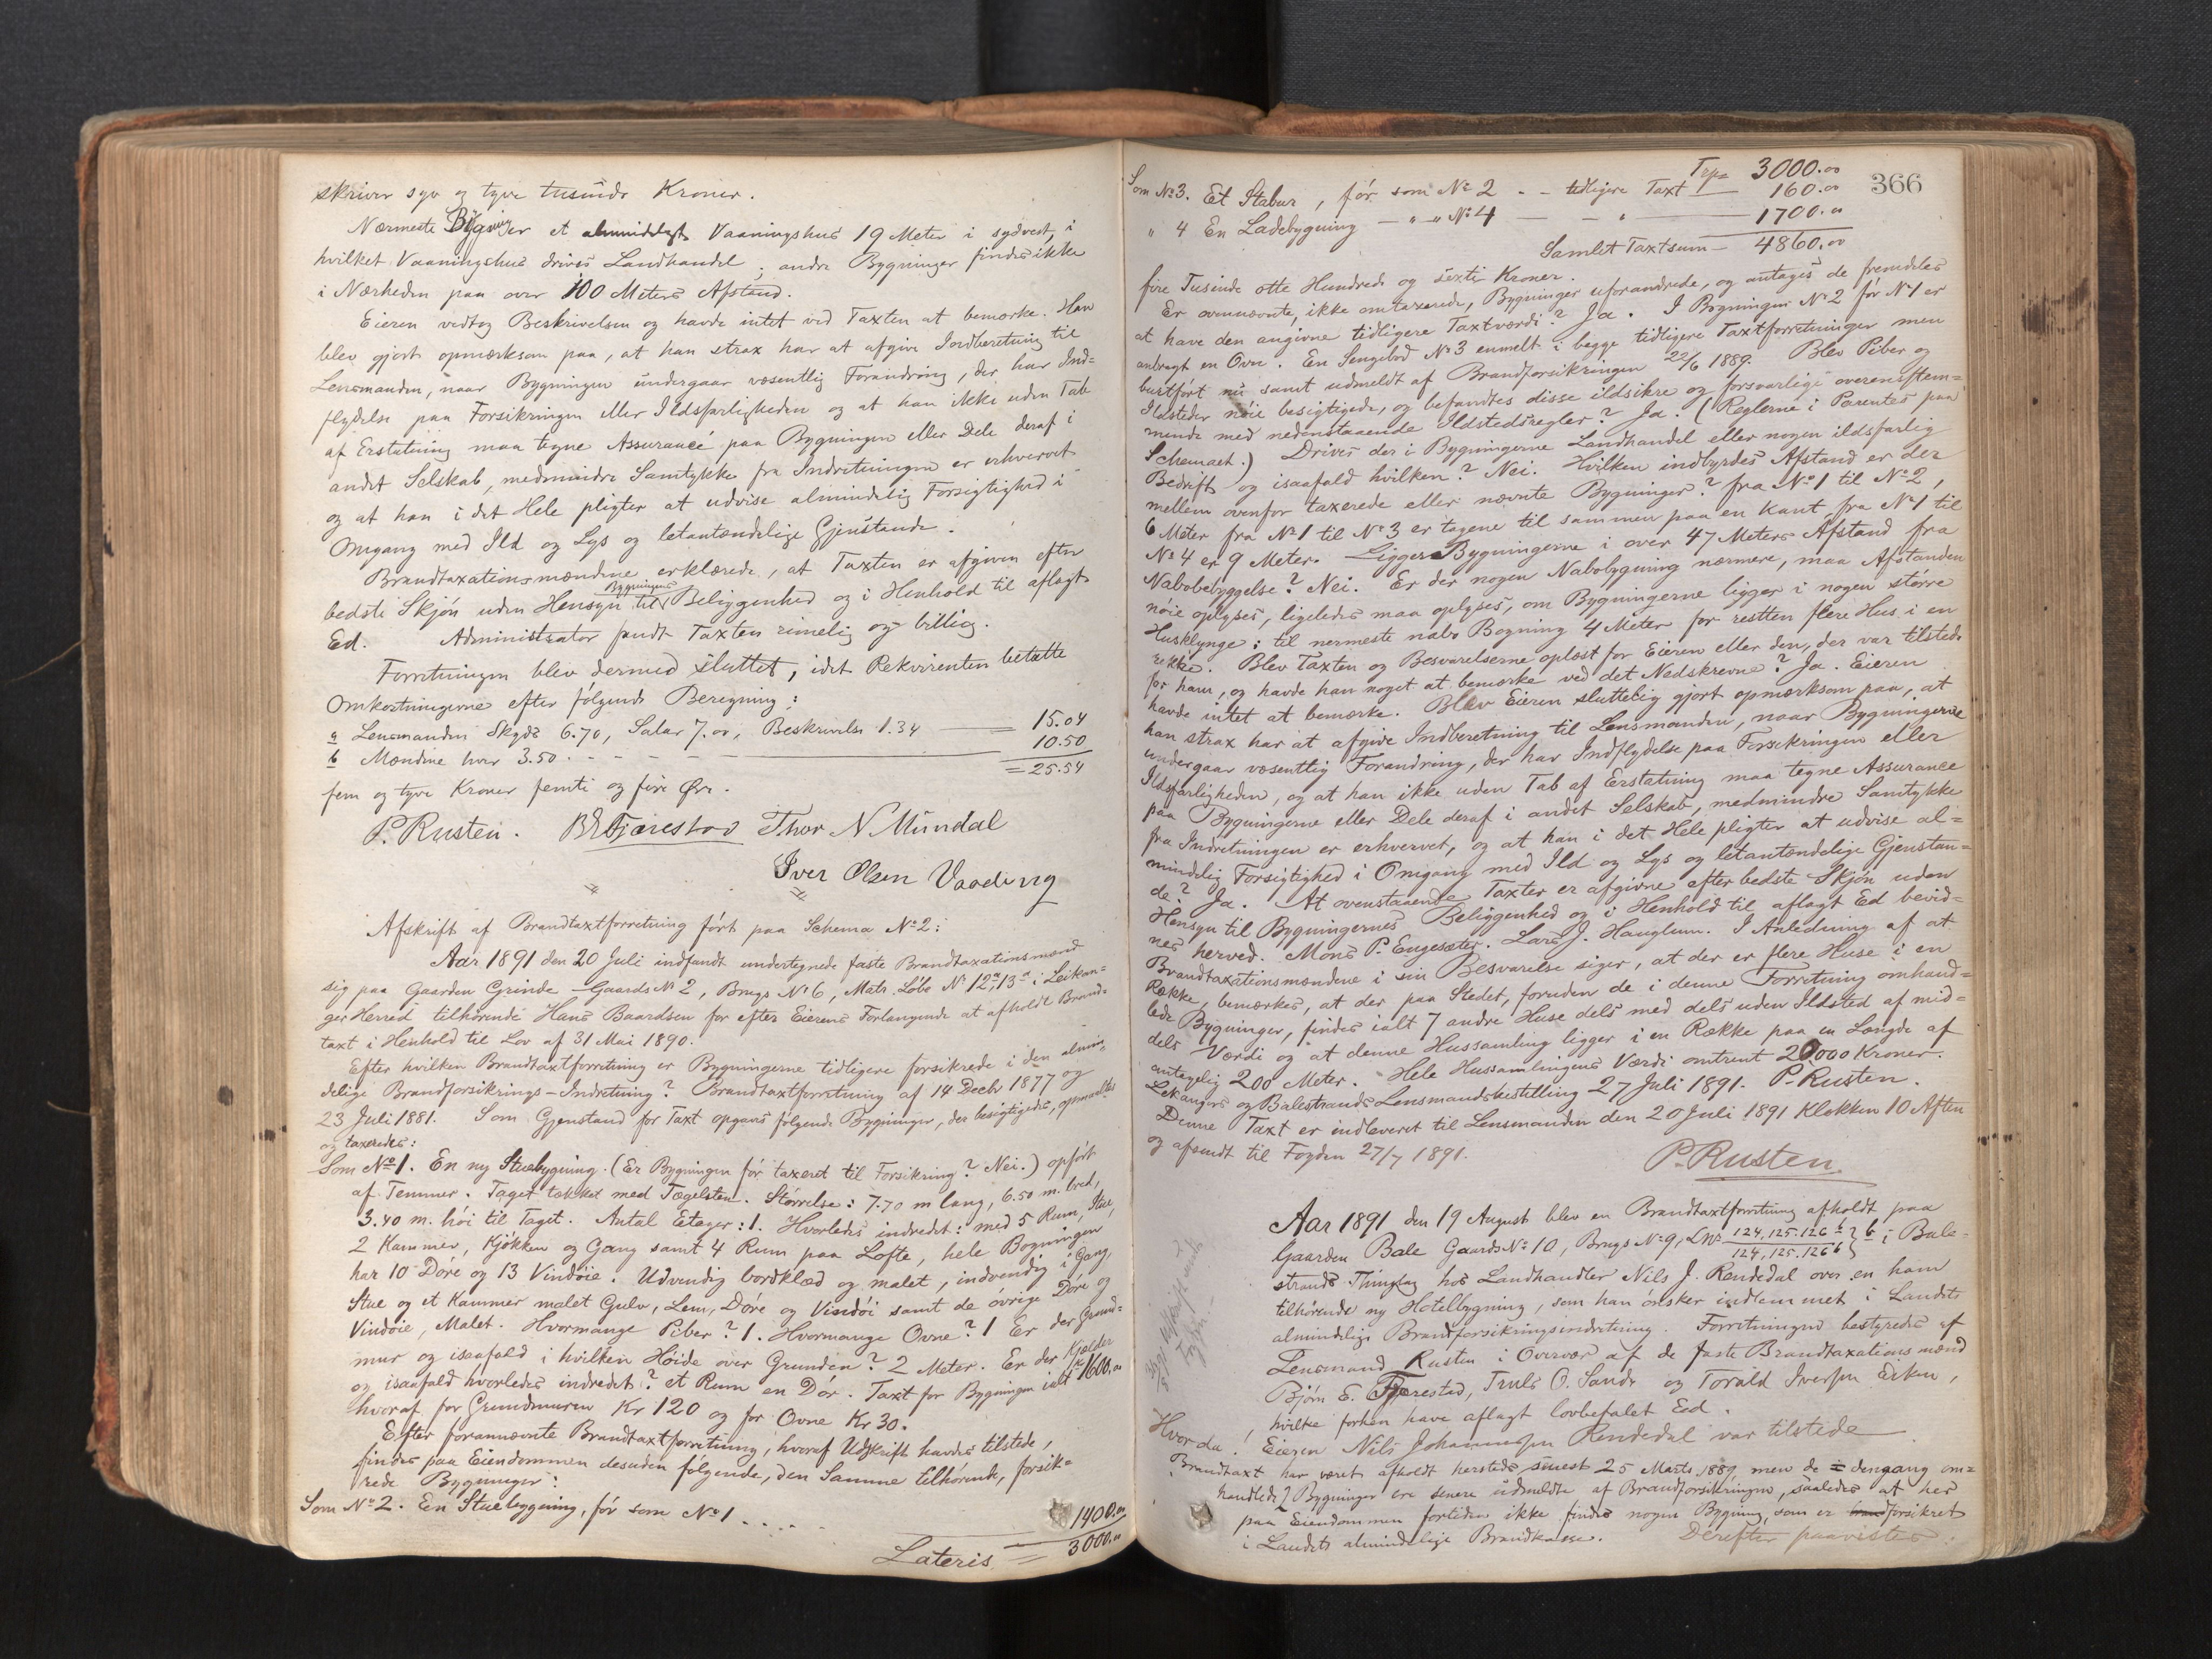 skriver syv og tyve tusinde Kroner.
Nærmeste Bygning er et almindeligt Vaaningshus 19 Meter i sydvest, i
hvilket Vaaningshus drives Landhandel; andre Bygninger findes ikke
i Nærheden paa over 100 Meters Afstand.
Eieren vedtog Beskrivelsen og havde intet ved Taxten at bemærke. Han
blev gjort opmærksom paa, at han strax har at afgive Indberetning til
Lensmanden, naar Bygningen undergaar væsentlig Forandring, der har Ind=
flydelse paa Forsikringen eller Ildsfarligheden og at han ikke uden Tab
af Erstatning maa tegne Assurance paa Bygningen eller Dele deraf i
andet Selskab, medmindre Samtykke fra Indretningen er erhvervet
og at han i det Hele pligter at udvise almindelig Forsigtighed i
Omgang med Ild og Lys og letantændelige Gjenstande.
Brandtaxationsmændene erklærede, at Taxten er afgiven efter
bedste Skjøn uden Hensyn til Bygningens Beliggenhed og i Henhold til aflagt
Ed. Administrator fandt Taxten rimelig og billig.
Forretningen blev dermed sluttet, idet Rekvirenten betalte
Omkostningerne efter følgende Beregning:
a Lensmanden Skyds 6.70, Salær 7.00, Beskrivelse 1.34 = 15.04
b Mændene hver 3.50 - - - 10.50
= 25.54
fem og tyve Kroner femti og fire Øre.
P. Rusten. BE Fjærestad Thor N Mundal
Iver Olsen Vaading
Afskrift af Brandtaxtforretning ført paa Schema No 2:
Aar 1891 den 20 Juli indfandt undertegnede faste Brandtaxationsmænd
sig paa Gaarden Grinde - Gaards No 2, Brugs No 6, Matr. Løbe No 12a, 13a i Leikan=
ger Herred tilhørende Hans Baardsen for efter Eierens Forlangende at afholde Brand=
taxt i Henhold til Lov af 31 Mai 1890.
Efter hvilken Brandtaxtforretning er Bygningerne tidligere forsikrede i den almin=
delige Brandforsikrings-Indretning? Brandtaxtforretning af 14 Decbr 1877 og
23 Juli 1881. Som Gjenstand for Taxt opgaves følgende Bygninger, der besigtigedes, opmaaltes
og taxeredes:
Som No 1. En ny Stuebygning. (Er Bygningen før taxeret til Forsikring? Nei.) opført
af Temmer. Taget tækket med Tægelsten. Størrelse: 7.70 m lang, 6.50 m. bred,
3.40 m. høi til Taget. Antal Etager: 1. Hvorledes indredet: med 5 Rum, Stue,
2 Kammer, Kjøkken og Gang samt 4 Rum paa Lofte, hele Bogningen
har 10 Døre og 13 Vindøie. Udvendig bordklæd og malet, indvendig i Gang,
Stue og et Kammer malet Gulv, Lem, Døre og Vindøi samt de øvrige Døre og
Vindøie, Malet. Hvormange Piber? 1. Hvormange Ovne? 1 Er der Grund=
mur og isaafald i hvilken Høide over Grunden? 2 Meter. Er der Kjelder
og isaafald hvorledes indredet? et Rum en Dør. Taxt for Bygningen ialt Kr 1600.00
hvoraf for Grundmuren Kr 120 og for Ovne Kr 30.
Efter forannævnte Brandtaxtforretning, hvoraf Udskrift havdes tilstede,
findes paa Eiendommen desuden følgende, den Samme tilhørende, forsik=
rede Bygninger:
Som No 2. En Stuebygning, før som No 1 . . . . 1400.00
Lateris = 3000.00
366
Trp= 3000.00
Som No 3. Et Stabur, før som No 2 - - tidligere Taxt 160.00
" 4 En Ladebygning - " - " No 4 - - " - 1700.00
Samlet Taxtsum - 4860.00
fire Tusinde otte Hundrede og sexti Kroner.
Er ovennævnte, ikke omtaxerede, Bygninger uforandrede, og antages de fremdeles
at have den angivne tidligere Taxtværdi? Ja. I Bygningen No 2 før No 1 er
anbragt en Ovn. En Sengebod No 3 enmelt i begge tidligere Taxtforretninger men
burtført nu samt udmeldt af Brandforsikringen 22/6 1889. Blev Piber og
Ildsteder nøie besigtigede, og befandtes disse ildsikre og forsvarlige overensstem=
mende med nedenstaaende Ildstedsregler? Ja. (Reglerne i Parentes paa
Schemaet.) Drives der i Bygningerne Landhandel eller nogen ildsfarlig
Bedrift og isaafald hvilken? Nei. Hvilken indbyrdes Afstand er der
mellem ovenfor taxerede eller nævnte Bygninger? fra No 1 til No 2,
6 Meter fra No 1 til No 3 er tagene til sammen paa en Kant, fra No 1 til
No 4 er 9 Meter. Ligger Bygningerne i over 47 Meters Afstand fra
Nabobebyggelse? Nei. Er der nogen Nabobygning nærmere, maa Afstanden
nøie oplyses, ligeledes maa oplyses, om Bygningerne ligger i nogen større
Husklynge: til nermeste nabo Bogning 4 Meter for restten flere Hus i en
rekke. Blev Taxten og Besvarelserne oplæst for Eieren eller den, der var tilstede
for ham, og havde han noget at bemærke ved det Nedskrevne? Ja. Eieren
havde intet at bemærke. Blev Eieren sluttelig gjort opmærksom paa, at
han strax har at afgive Indberetning til Lensmanden, naar Bygningerne
undergaar væsentlig Forandring, der har Indflydelse paa Forsikringen eller
Ildsfarligheden, og at han ikke uden Tab af Erstatning maa tegne Assurance
paa Bygningerne eller Dele deraf i andet Selskab, medmindre Samtykke
fra Indretningen er erhvervet, og at han i det Hele pligter at udvise al=
mindelig Forsigtighed i Omgang med Ild og Lys og letantændelige Gjenstan=
de? Ja. At ovenstaaende Taxter er afgivne efter bedste Skjøn uden
Hensyn til Bygningernes Beliggenhed og i Henhold til aflagt Ed bevid=
nes herved. Mons P. Engesæter. Lars J. Hauglum. I Anledning af at
Brandtaxationsmændene i sin Besvarelse siger, at der er flere Huse i en
Række, bemærkes, at der paa Stedet, foruden de i denne Forretning omhand=
lede Bygninger, findes ialt 7 andre Huse dels med dels uden Ildsted af mid=
dels Værdi og at denne Hussamling ligger i en Række paa en Længde af
antagelig 200 Meter. Hele Hussamlingens Værdi omtrent 20000 Kroner.
Lekangers og Balestrands Lensmandsbestilling 27 Juli 1891. P. Rusten.
Denne Taxt er indleveret til Lensmanden den 20 Juli 1891 Klokken 10 Aften
og afsendt til Fogden 27/7 1891.
P. Rusten
Aar 1891 den 19 August blev en Brandtaxtforretning afholdt paa
Gaarden Bale Gaards No 10, Brugs No 9, LNo 124, 125. 126 b / 124, 125. 126 b } b i Bale=
strands Thinglag hos Landhandler Nils J. Rendedal over en ham
tilhørende ny Hotelbygning, som han ønsker indlemmet i Landets
almindelige Brandforsikringsindretning. Forretningen bestyredes af
Lensmand Rusten i Overvær af de faste Brandtaxationsmænd
Bjørn E. Fjærestad, Truls O. Sande og Torald Iversen Eiken,
hvilke forhen have aflagt lovbefalet Ed.
Hvorda! Eieren Nils Johannessen Rendedal var tilstede
Brandtaxt har været afholdt hersteds senest 25 Marts 1889 men de dengang om=
handlede 2 Bygninger ere senere udmeldte af Brandforsikringen, saaledes at her
paa Eiendommen fortiden ikke findes nogen Bygning, som er forsikret
i Landets almindelige Brandkasse. Derefter paavistes